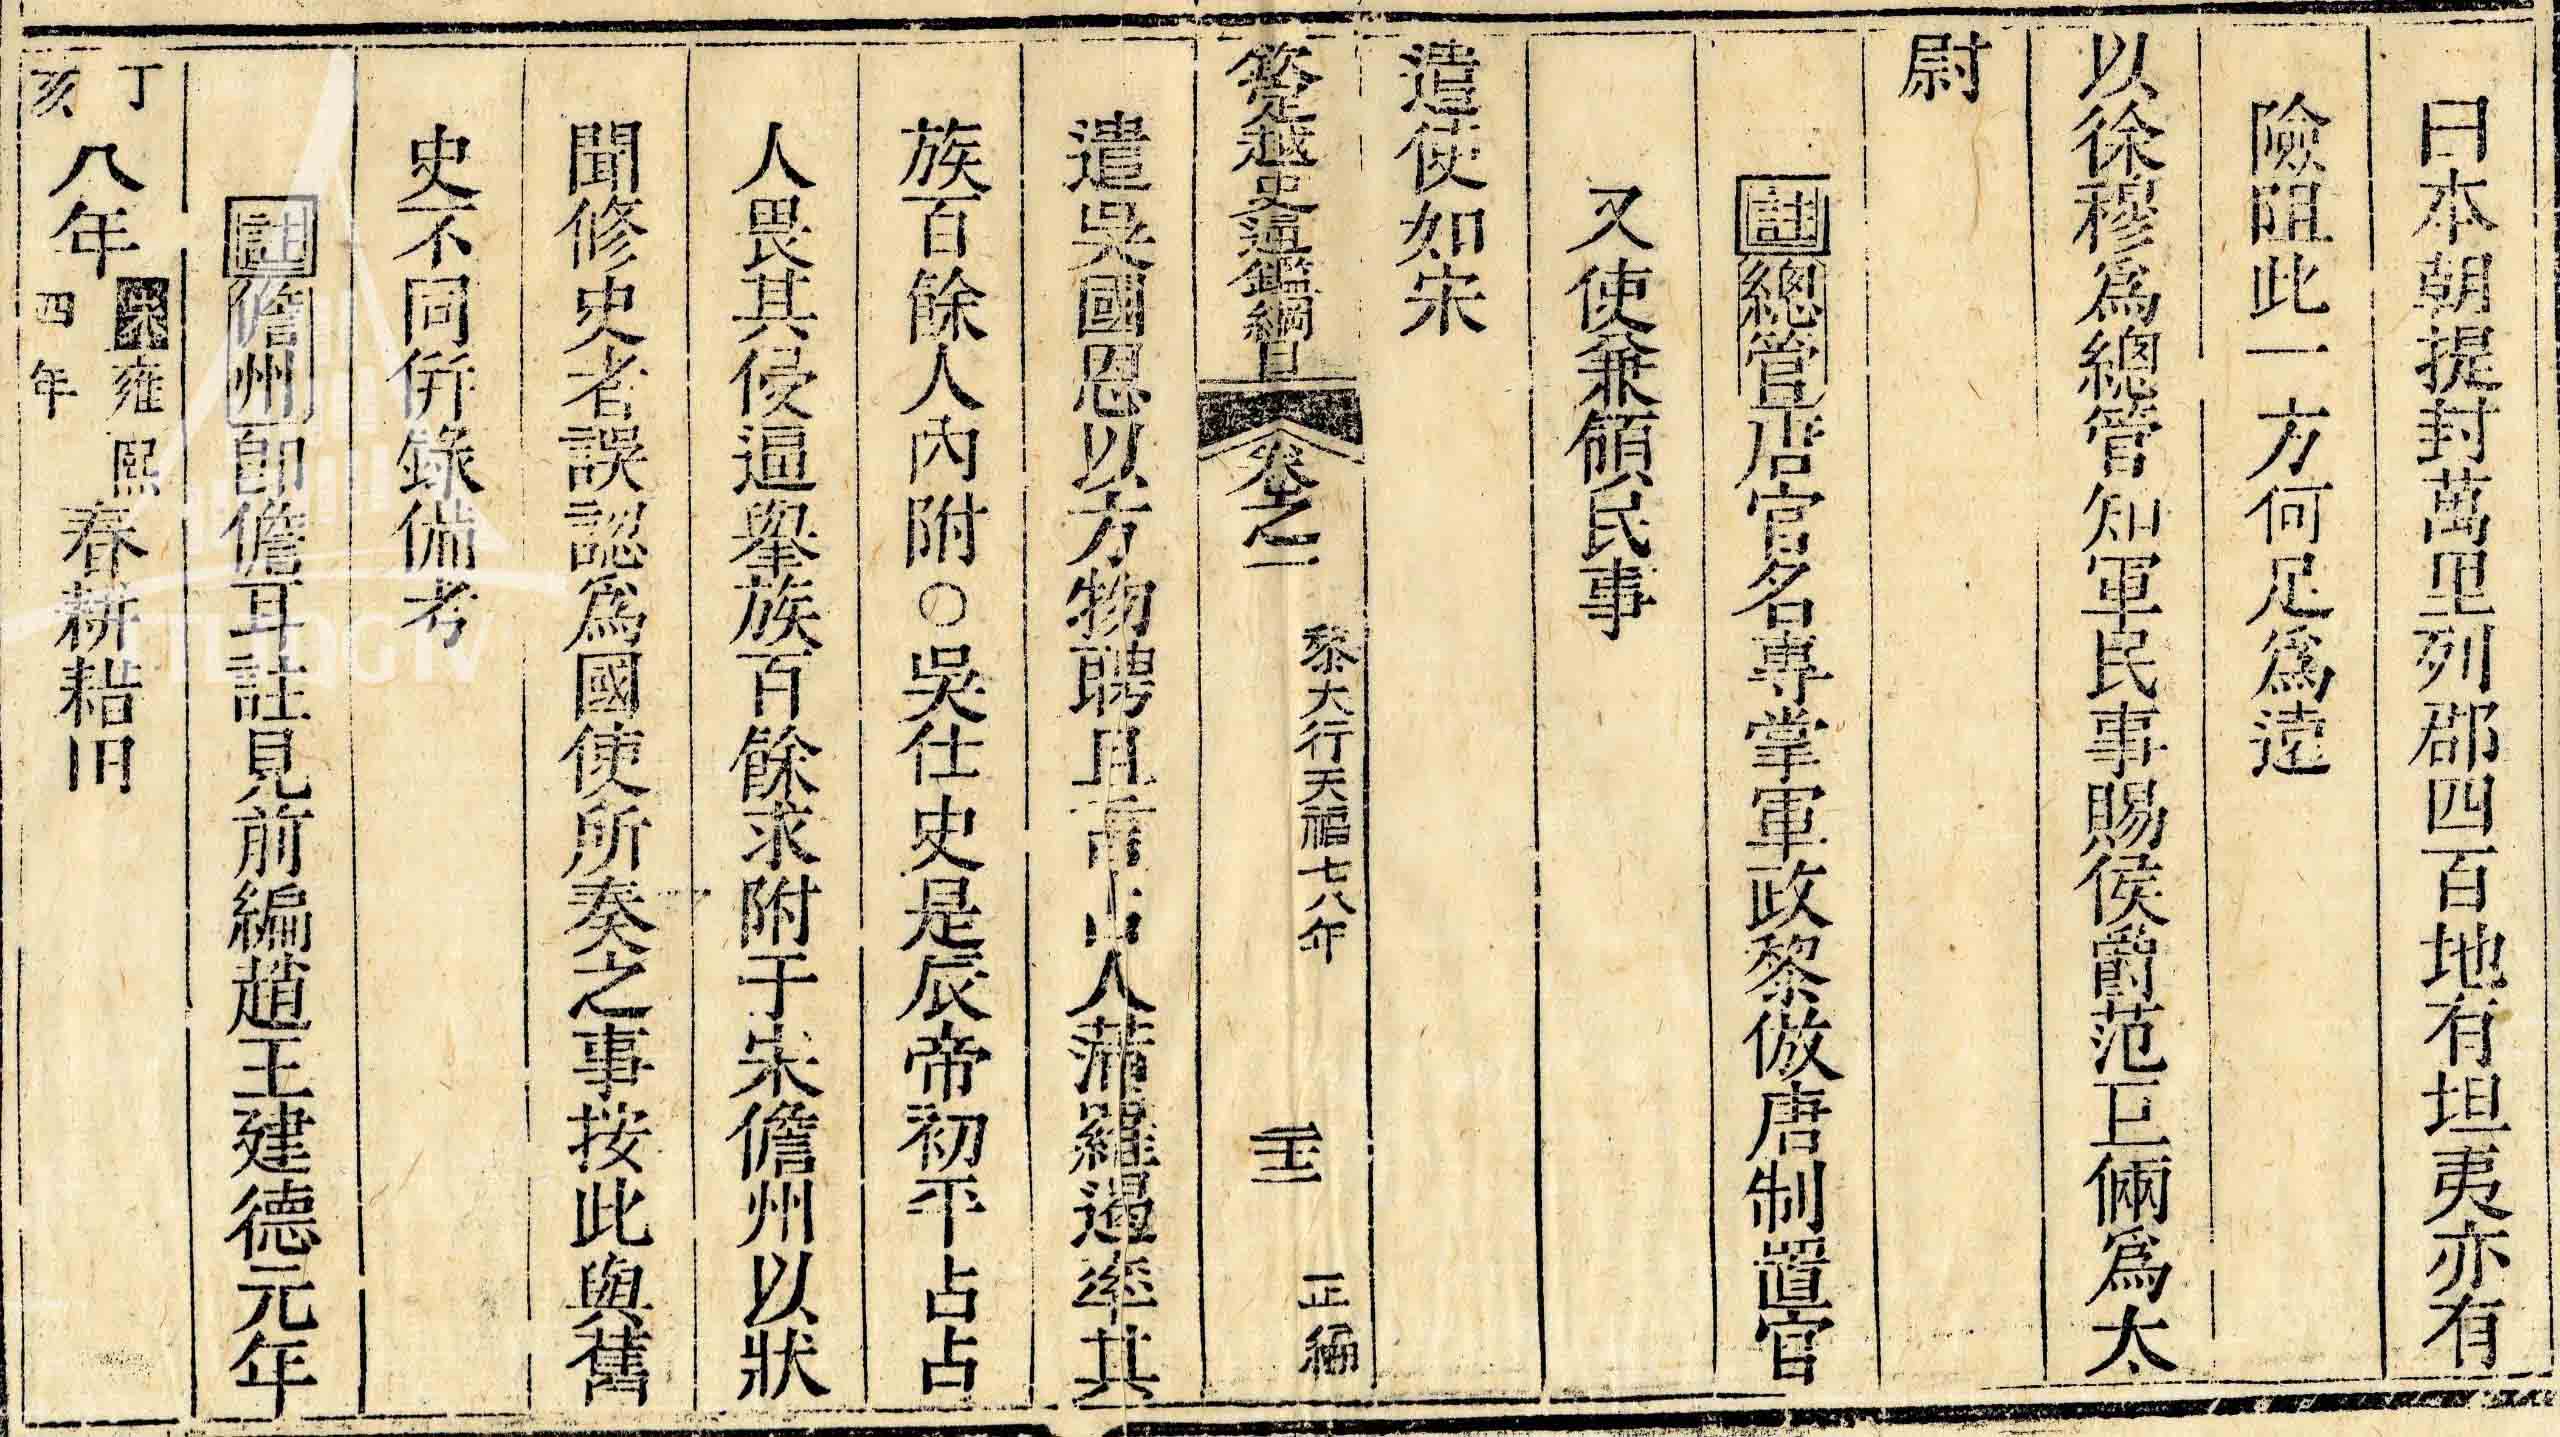 曰本朝提封萬里列郡四百地有坦夷亦有
險阻此一方何足爲遠
以徐穆爲總管知軍民事賜侯爵范巨倆爲太
尉
註總管唐官名專掌軍政黎倣唐制置官
又使兼領民事
遣使如宋
欽定越史通鑑綱目 卷之一 黎大行天福七八年 二十三 正編
遣吳國恩以方物聘且言占人蒲羅遏率其
族百餘人內附○吳仕史是辰帝初平占占
人畏其侵逼舉族百餘求附于宋儋州以狀
聞修史者誤認爲國使所奏之事按此與舊
史不同併錄備考
註儋州卽儋耳註見前編趙王建德元年
丁亥八年宋雍熙四年春耕耤田